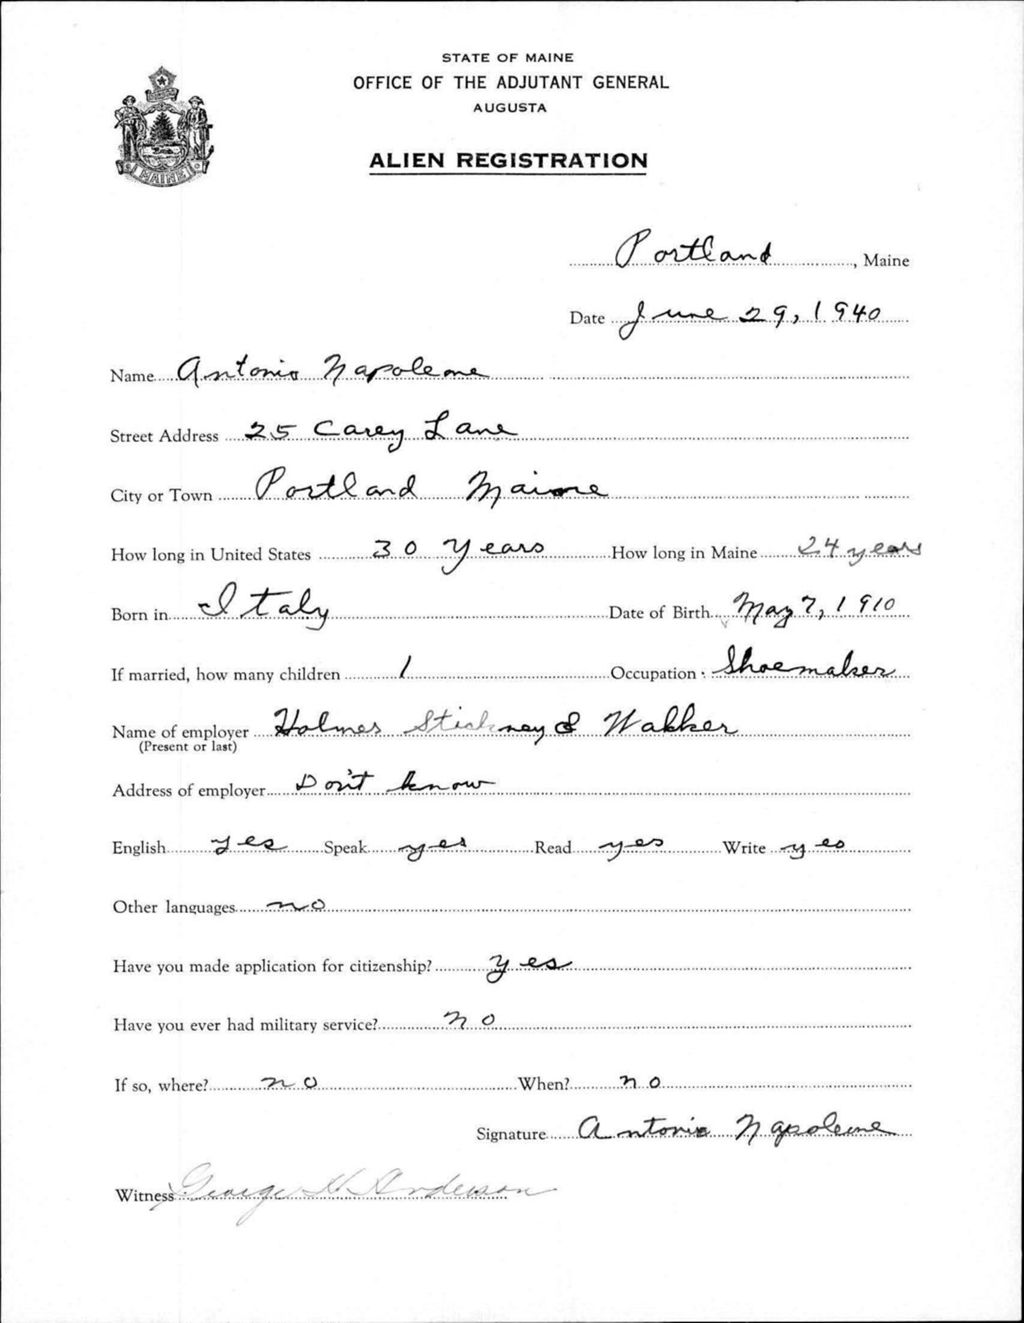 STATE OF MAINE
OFFICE OF THE ADJUTANT GENERAL
AUGUSTA
ALIEN REGISTRATION
MAINE
Portland, Maine
Date June 29, 1940
Name Antonio Napoleone
Street Address 25 Carey Lane
City or Town Portland Maine
How long in United States 30 Years How long in Maine 24 years
Born in Italy Date of Birth May 7, 1910
If married, how many children 1 Occupation Shoemaker
Name of employer Holmes Stickney & Walker
(Present or last)
Address of employer Don't know
English yes Speak yes Read yes Write yes
Other languages no
Have you made application for citizenship? Yes
Have you ever had military service? No
If so, where? no When? no
Signature Antonio Napoleone
Witness George H Anderson